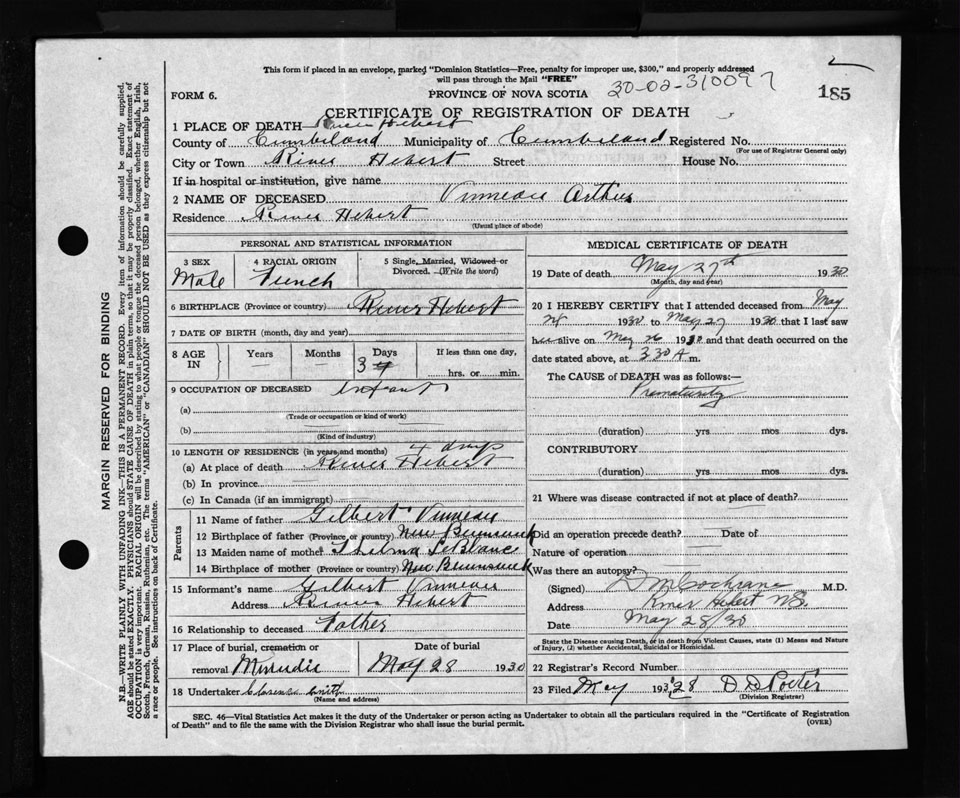 This form if placed in an envelope, marked "Dominion Statistics—Free, penalty for improper use, $300," and properly addressed
will pass through the Mail "FREE"
30-02-310097
2
185
FORM 6.
PROVINCE OF NOVA SCOTIA
CERTIFICATE OF REGISTRATION OF DEATH
1 PLACE OF DEATH River Hebert
County of Cumberland Municipality of Cumberland Registered No.
(For use of Registrar General only)
City or Town River Hebert Street House No.
If in hospital or institution, give name
2 NAME OF DECEASED Vinneau Arthur
Residence River Hebert
(Usual place of abode)
PERSONAL AND STATISTICAL INFORMATION
3 SEX
Male
4 RACIAL ORIGIN
French
5 Single, Married, Widowed or
Divorced. (Write the word)
6 BIRTHPLACE (Province or country) River Hebert
7 DATE OF BIRTH (month, day and year)
8 AGE
IN
Years
Months
Days
3
If less than one day,
hrs. or min.
9 OCCUPATION OF DECEASED Infant
(a)
(Trade or occupation or kind of work)
(b)
(Kind of industry)
10 LENGTH OF RESIDENCE (in years and months) 4 days
(a) At place of death River Hebert
(b) In province
(c) In Canada (if an immigrant)
Parents
11 Name of father Gilbert Vinneau
12 Birthplace of father (Province or country) New Brunswick
13 Maiden name of mother Thelma LeBlance
14 Birthplace of mother (Province or country) New Brunswick
15 Informant's name Gilbert Vinneau
Address River Hebert
16 Relationship to deceased Father
17 Place of burial, cremation or
removal Minudie
Date of burial
May 28 1930
18 Undertaker Clarence Smith
(Name and address)
MEDICAL CERTIFICATE OF DEATH
19 Date of death May 27th 1930
(Month, day and year)
20 I HEREBY CERTIFY that I attended deceased from May
24 1930 to May 27 1930 that I last saw
h alive on May 26 1930 and that death occurred on the
date stated above, at 3 30 A m.
The CAUSE of DEATH was as follows:—
Prematurity
(duration) yrs mos dys.
CONTRIBUTORY
(duration) yrs. mos. dys.
21 Where was disease contracted if not at place of death?
Did an operation precede death? Date of
Nature of operation
Was there an autopsy?
(Signed) D M Cochrane M.D.
Address River Hebert N.S.
Date May 28/30
State the Disease causing Death, or in death from Violent Causes, state (1) Means and Nature
of Injury, (2) whether Accidental, Suicidal or Homicidal.
22 Registrar's Record Number
23 Filed May 28 193 D D Porter
(Division Registrar)
SEC. 46—Vital Statistics Act makes it the duty of the Undertaker or person acting as Undertaker to obtain all the particulars required in the "Certificate of Registration
of Death" and to file the same with the Division Registrar who shall issue the burial permit.
(OVER)
MARGIN RESERVED FOR BINDING
N.B.—WRITE PLAINLY WITH UNFADING INK—THIS IS A PERMANENT RECORD. Every item of information should be carefully supplied.
AGE should be stated EXACTLY. PHYSICIANS should STATE CAUSE OF DEATH in plain terms, so that it may be properly classified. Exact statement of
OCCUPATION is very important. RACIAL ORIGIN will be described by stating to what people or tongue the deceased person belonged, whether English, Irish,
Scotch, French, German, Russian, Ruthenian, etc. The terms "AMERICAN" or "CANADIAN" SHOULD NOT BE USED as they express citizenship but not
a race or people. See instructions on back of Certificate.